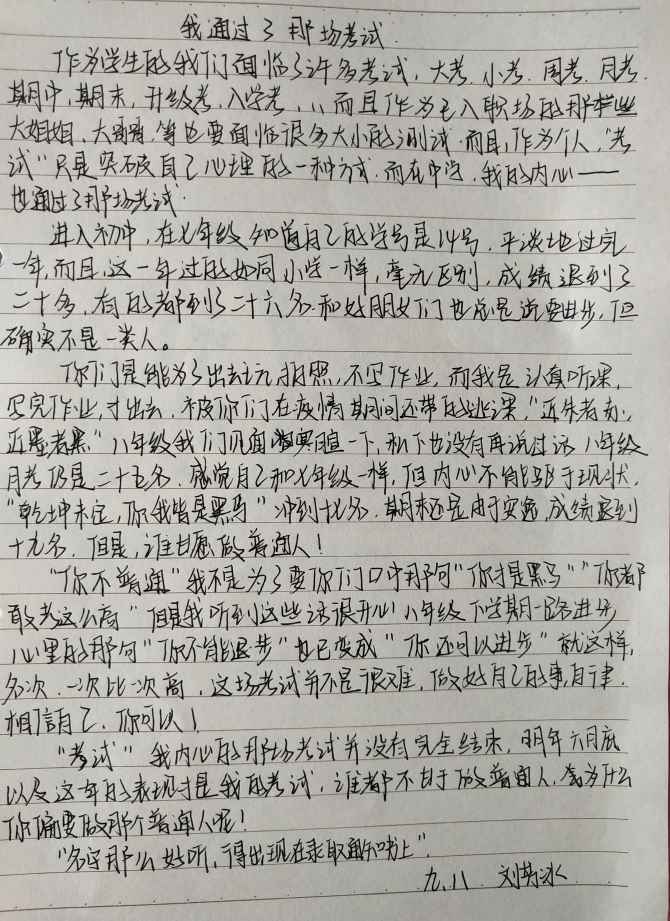 我通过了那场考试
作为学生的我们面临了许多考试,大考、小考、周考、月考、
期中,期末,升级考、入学考、,,而且作为已入职场的那些
大姐姐、大哥哥等也要面临很多大小的测试.而且,作为个人,“考
试”只是突破自己心理的一种方式.而在中学,我的内心——
也通过了那场考试.
进入初中,在七年级知道自己的学号是14号,平淡地过完
一年,而且这一年过的如同小学一样,毫无区别,成绩退到了
二十多,有的都到了二十六名.和好朋友们也总是说要进步,但
确实不是一类人。
你们是能为了出去玩拍照,不写作业,而我是认真听课,
写完作业,才出去,被你们在疫情期间还带的逃课,“近朱者赤,
近墨者黑”八年级我们见面寒暄一下,私下也没有再说过话.八年级
月考仍是二十五名.感觉自己和七年级一样,但内心不能驱于现状.
“乾坤未定,你我皆是黑马”冲到十七名.期末还是由于安逸,成绩退到
十九名.但是,谁甘愿做普通人!
“你不普通”我不是为了要你们口中那句“你才是黑马”“你都
敢考这么高”但是我听到这些话很开心.八年级下学期一路进步
心里的那句“你不能退步”也已变成“你还可以进步”就这样,
名次,一次比一次高,这场考试并不是很难,做好自己的事,自律,
相信自己,你可以!
“考试”我内心的那场考试并没有完全结束,明年六月底
以及这一年的表现才是我的考试,谁都不甘于做普通人,为什么
你偏要做那个普通人呢!
“名字那么好听,得出现在录取通知书上”.
九.八 刘英冰